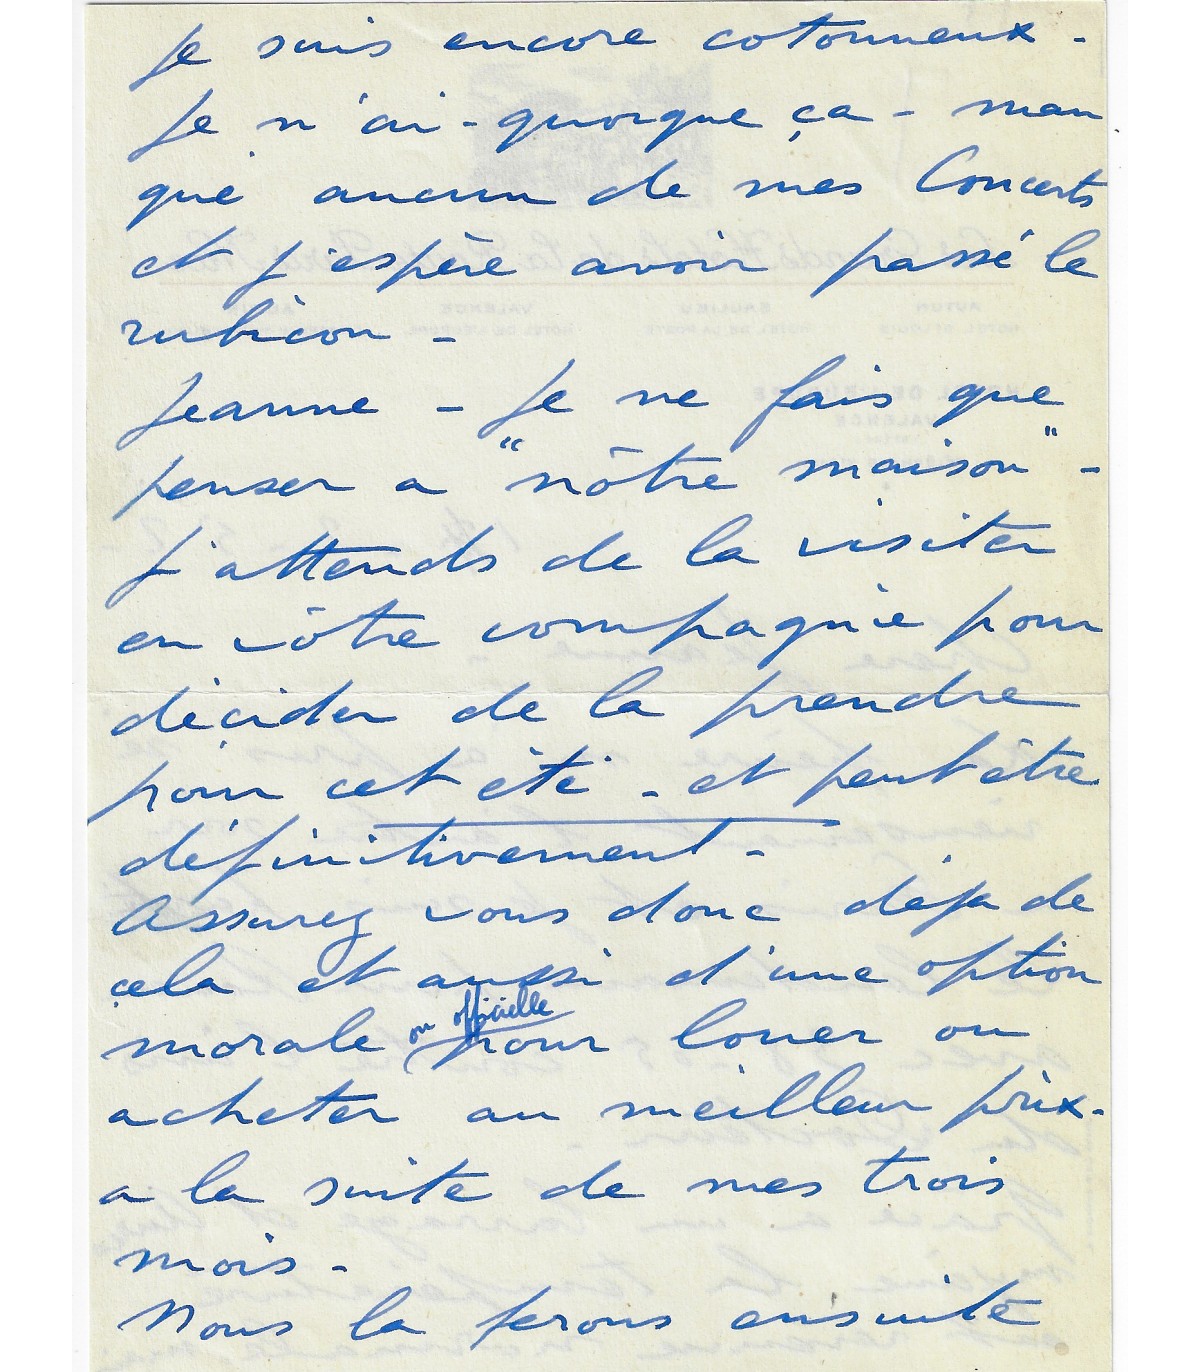 Je suis encore cotonneux -
Je n'ai - quoique ça - man
qué aucun de mes Concerts
et j'espère avoir passé le
rubicon -
Jeanne - Je ne fais que
penser a "nôtre maison" -
J'attends de la visiter
en vôtre compagnie pour
décider de la prendre
pour cet été - et peut être
définitivement -
Assurez vous donc déja de
cela et aussi d'une option
morale ou officielle pour louer ou
acheter au meilleur prix -
a la suite de mes trois
mois -
Nous la ferons ensuite